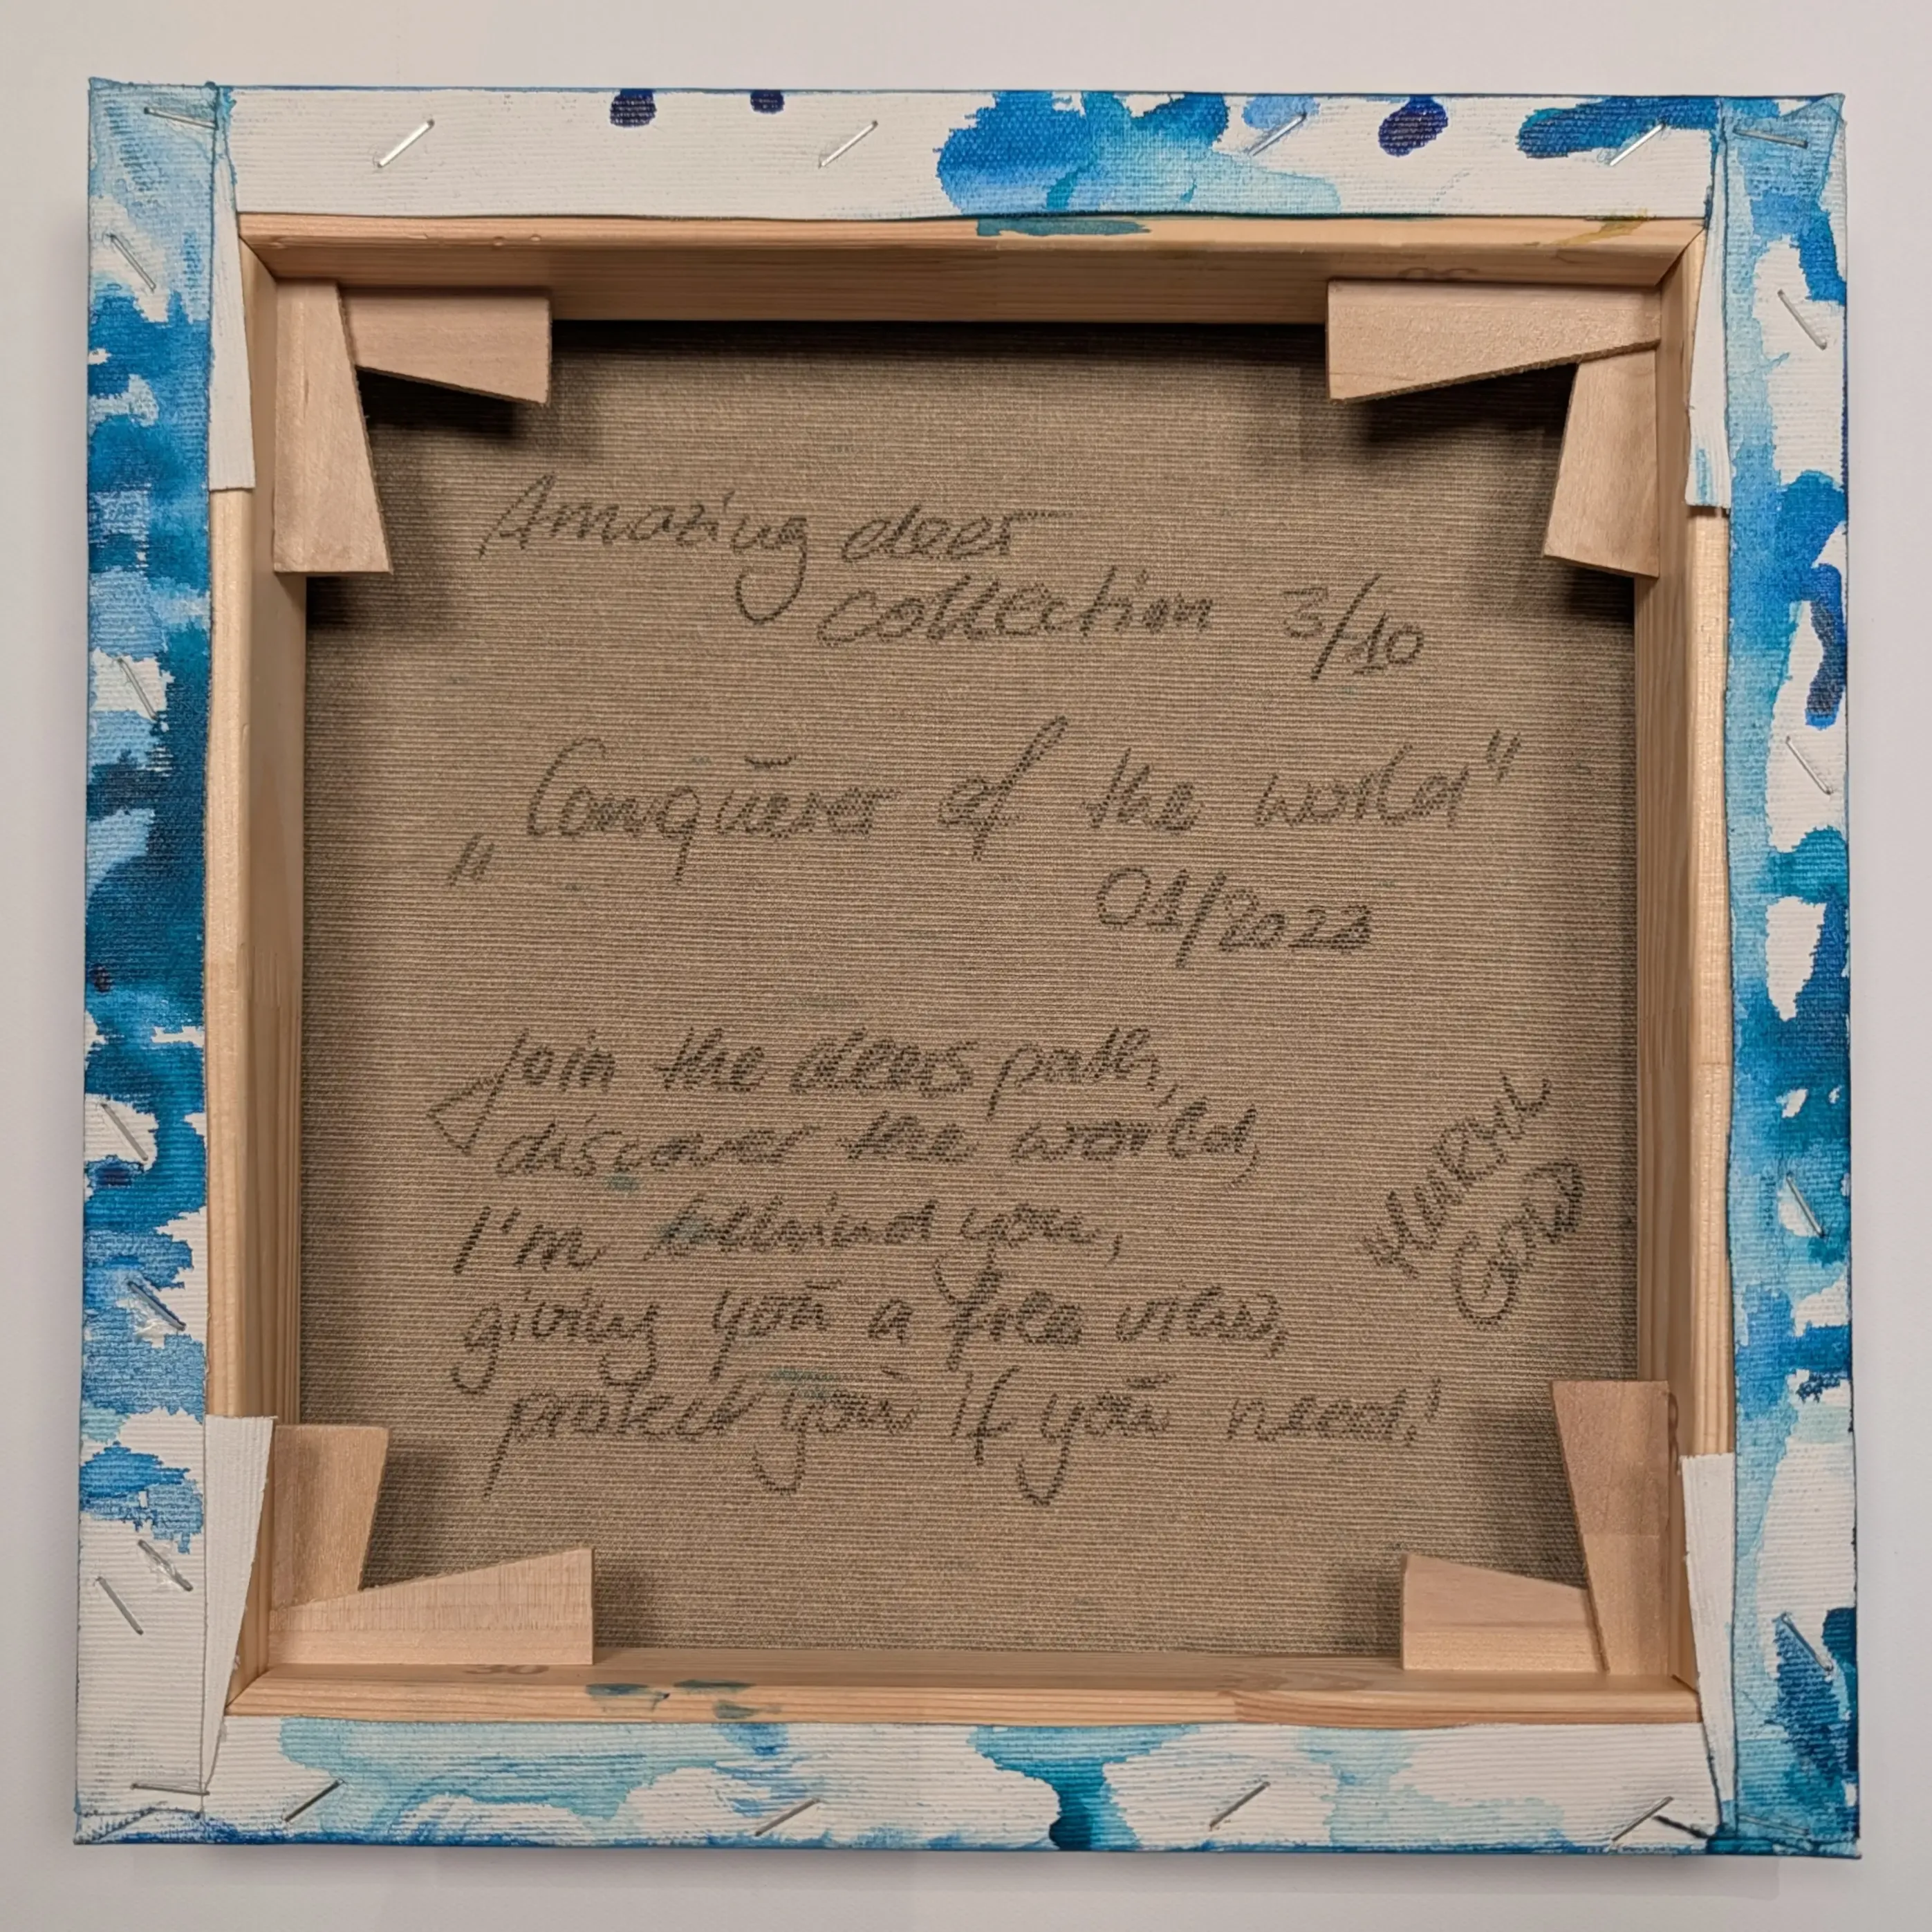 Amazing deer
collection 3/10
"Conquerer of the world"
01/2022
Join the deers path,
discover the world,
I'm behind you,
giving you a free view,
protect you if you need!